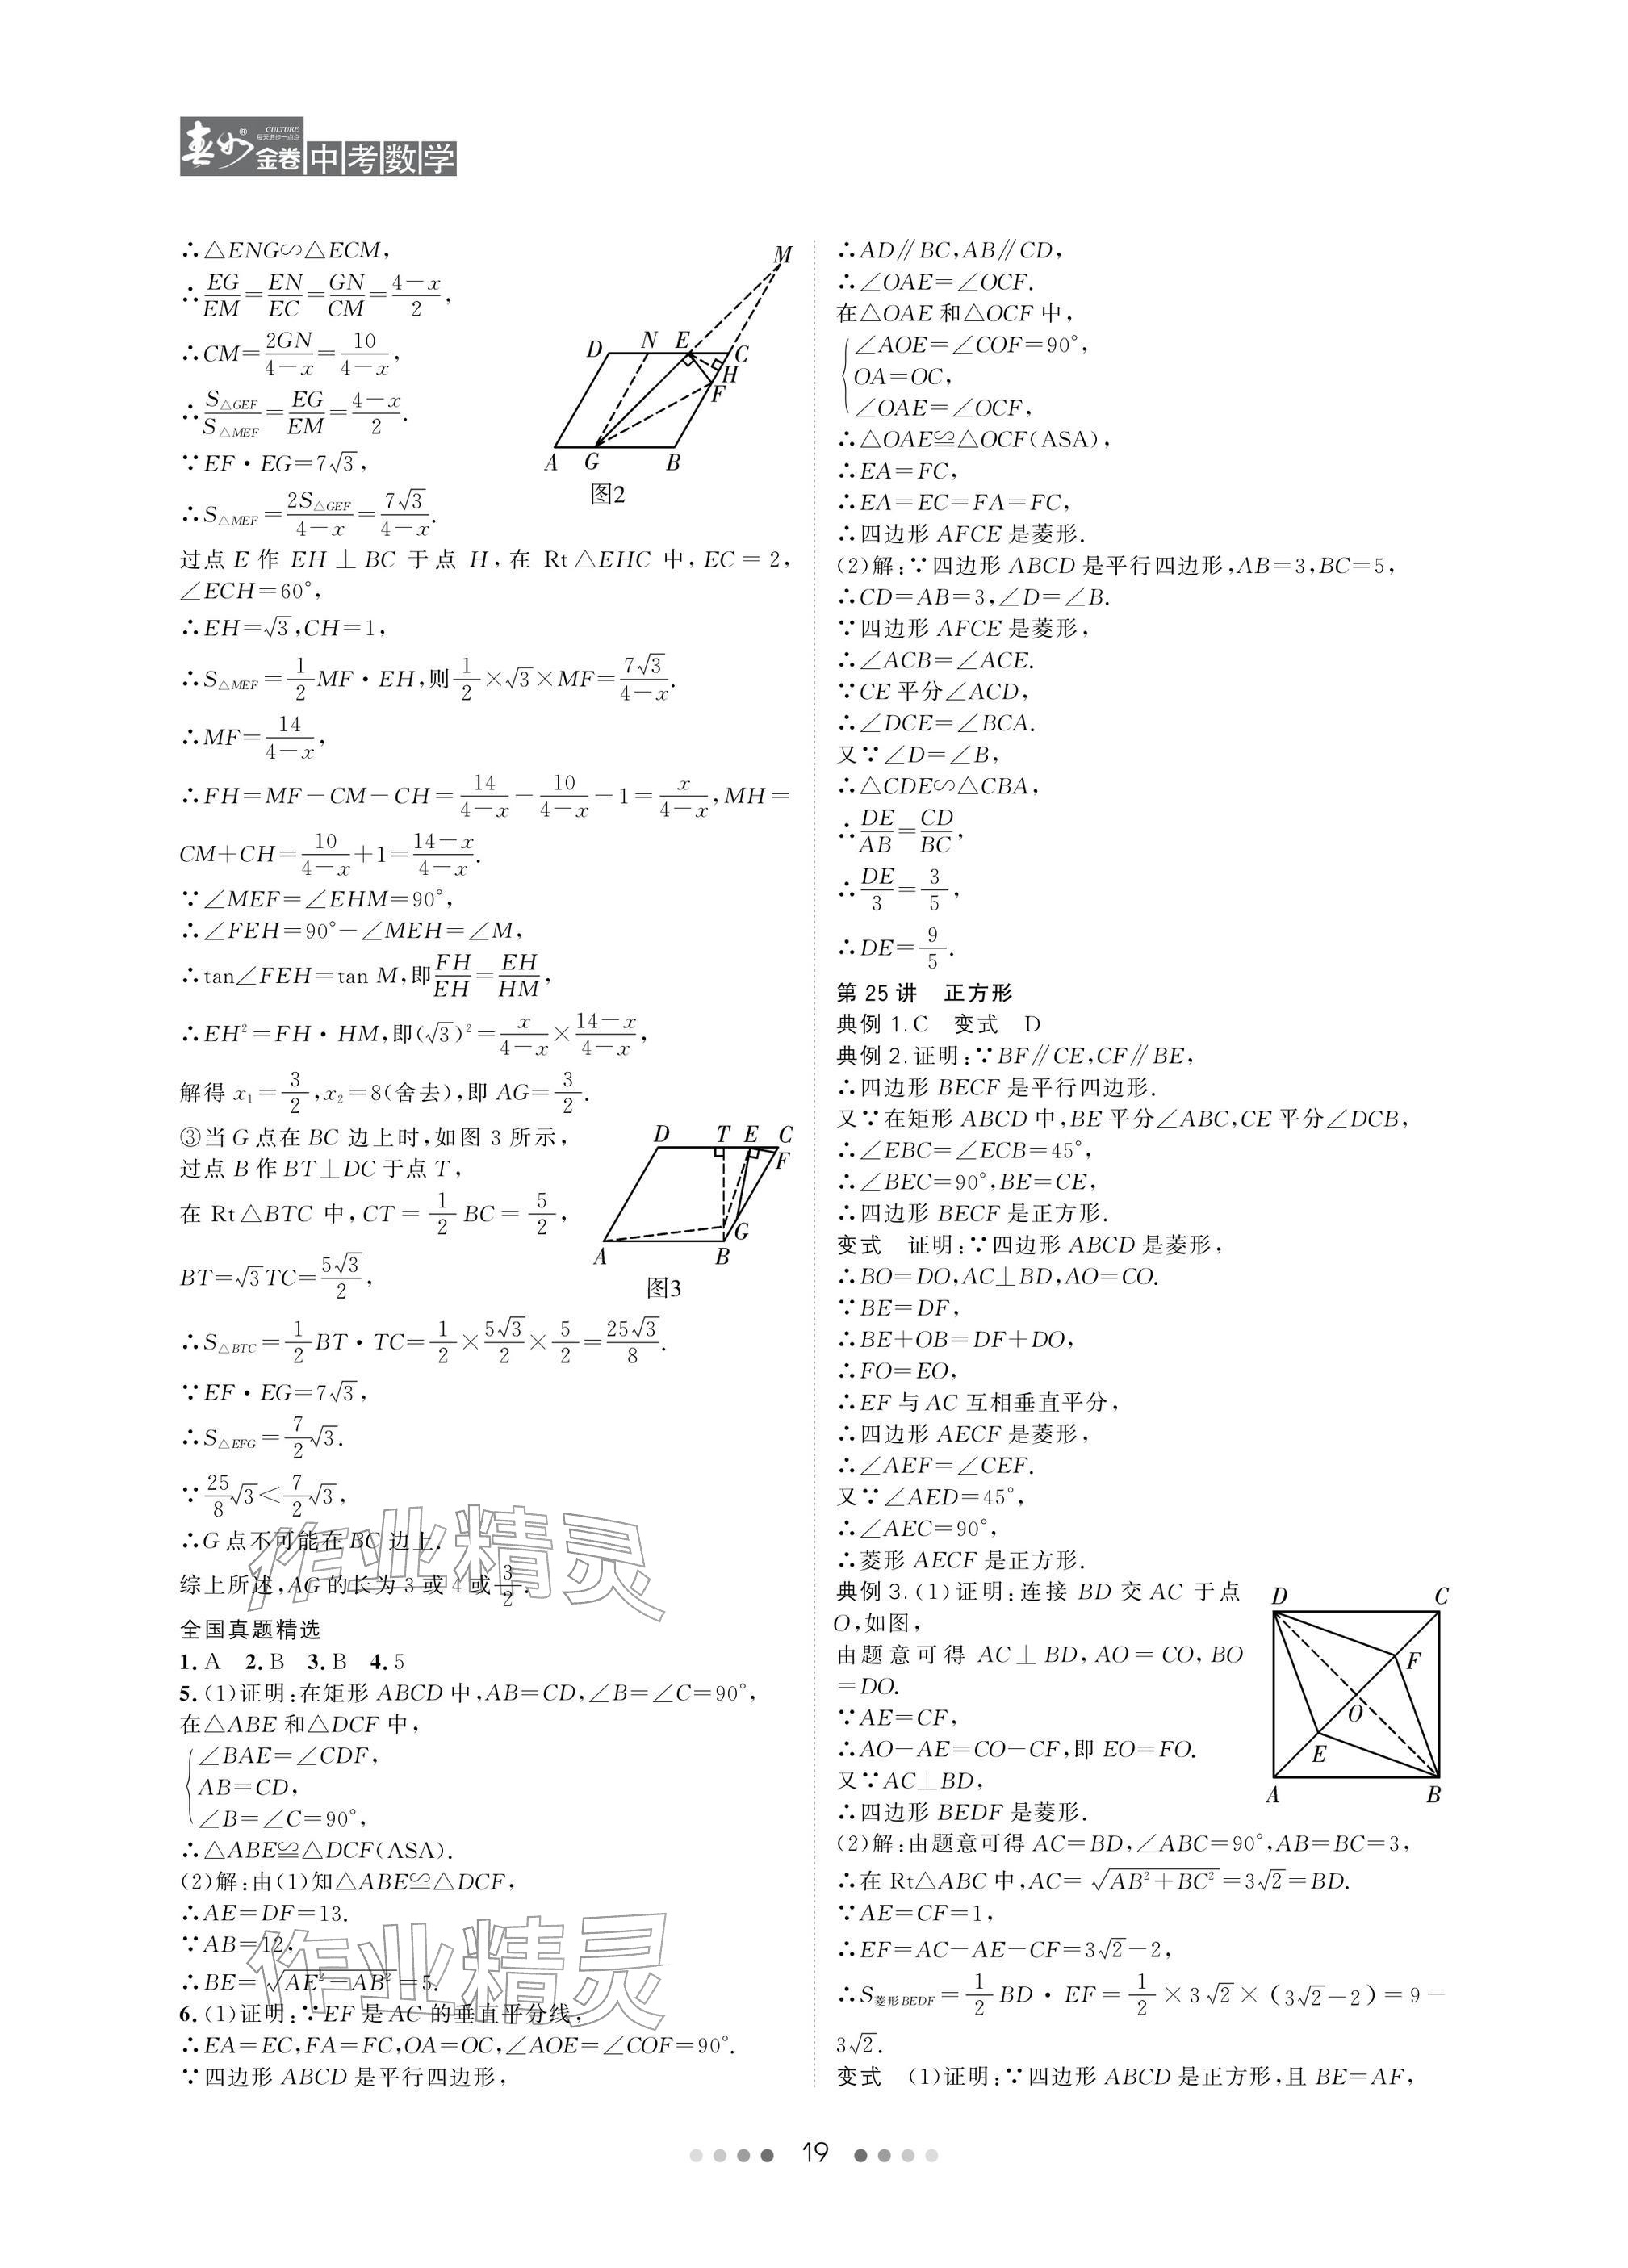 CULTURE
每天进步一点点
春如®金卷 中考数学
∴△ENG∽△ECM,
∴EG/EM=EN/EC=GN/CM=(4-x)/2,
∴CM=2GN/(4-x)=10/(4-x),
∴S△GEF/S△MEF=EG/EM=(4-x)/2.
∵EF·EG=7√3,
∴S△MEF=2S△GEF/(4-x)=7√3/(4-x).
M
D N E C
H
F
A G B
图2
过点 E 作 EH ⊥ BC 于点 H,在 Rt△EHC 中,EC=2,
∠ECH=60°,
∴EH=√3,CH=1,
∴S△MEF=1/2 MF·EH,则1/2×√3×MF=7√3/(4-x).
∴MF=14/(4-x),
∴FH=MF-CM-CH=14/(4-x)-10/(4-x)-1=x/(4-x),MH=
CM+CH=10/(4-x)+1=(14-x)/(4-x).
∵∠MEF=∠EHM=90°,
∴∠FEH=90°-∠MEH=∠M,
∴tan∠FEH=tan M,即FH/EH=EH/HM,
∴EH²=FH·HM,即(√3)²=x/(4-x)×(14-x)/(4-x),
解得 x₁=3/2,x₂=8(舍去),即 AG=3/2.
③当 G 点在 BC 边上时,如图 3 所示,
过点 B 作 BT⊥DC 于点 T,
在 Rt△BTC 中,CT=1/2 BC=5/2,
BT=√3TC=5√3/2,
D T E C
F
G
A B
图3
∴S△BTC=1/2 BT·TC=1/2×5√3/2×5/2=25√3/8.
∵EF·EG=7√3,
∴S△EFG=7/2√3.
∵25/8√3<7/2√3,
∴G 点不可能在 BC 边上.
综上所述,AG 的长为 3 或 4 或3/2.
全国真题精选
1. A 2. B 3. B 4. 5
5. (1)证明:在矩形 ABCD 中,AB=CD,∠B=∠C=90°,
在△ABE 和△DCF 中,
{∠BAE=∠CDF,
AB=CD,
∠B=∠C=90°,
∴△ABE≌△DCF(ASA).
(2)解:由(1)知△ABE≌△DCF,
∴AE=DF=13.
∵AB=12,
∴BE=√(AE²-AB²)=5.
6. (1)证明:∵EF 是 AC 的垂直平分线,
∴EA=EC,FA=FC,OA=OC,∠AOE=∠COF=90°.
∵四边形 ABCD 是平行四边形,
∴AD∥BC,AB∥CD,
∴∠OAE=∠OCF.
在△OAE 和△OCF 中,
{∠AOE=∠COF=90°,
OA=OC,
∠OAE=∠OCF,
∴△OAE≌△OCF(ASA),
∴EA=FC,
∴EA=EC=FA=FC,
∴四边形 AFCE 是菱形.
(2)解:∵四边形 ABCD 是平行四边形,AB=3,BC=5,
∴CD=AB=3,∠D=∠B.
∵四边形 AFCE 是菱形,
∴∠ACB=∠ACE.
∵CE 平分∠ACD,
∴∠DCE=∠BCA.
又∵∠D=∠B,
∴△CDE∽△CBA,
∴DE/AB=CD/BC,
∴DE/3=3/5,
∴DE=9/5.
第 25 讲 正方形
典例 1. C 变式 D
典例 2. 证明:∵BF∥CE,CF∥BE,
∴四边形 BECF 是平行四边形.
又∵在矩形 ABCD 中,BE 平分∠ABC,CE 平分∠DCB,
∴∠EBC=∠ECB=45°,
∴∠BEC=90°,BE=CE,
∴四边形 BECF 是正方形.
变式 证明:∵四边形 ABCD 是菱形,
∴BO=DO,AC⊥BD,AO=CO.
∵BE=DF,
∴BE+OB=DF+DO,
∴FO=EO,
∴EF 与 AC 互相垂直平分,
∴四边形 AECF 是菱形,
∴∠AEF=∠CEF.
又∵∠AED=45°,
∴∠AEC=90°,
∴菱形 AECF 是正方形.
典例 3. (1)证明:连接 BD 交 AC 于点
O,如图,
由题意可得 AC⊥BD,AO=CO,BO
=DO.
∵AE=CF,
∴AO-AE=CO-CF,即 EO=FO.
又∵AC⊥BD,
∴四边形 BEDF 是菱形.
D C
F
O
E
A B
(2)解:由题意可得 AC=BD,∠ABC=90°,AB=BC=3,
∴在 Rt△ABC 中,AC=√(AB²+BC²)=3√2=BD.
∵AE=CF=1,
∴EF=AC-AE-CF=3√2-2,
∴S菱形BEDF=1/2 BD·EF=1/2×3√2×(3√2-2)=9-
3√2.
变式 (1)证明:∵四边形 ABCD 是正方形,且 BE=AF,
作业精灵
作业精灵
19